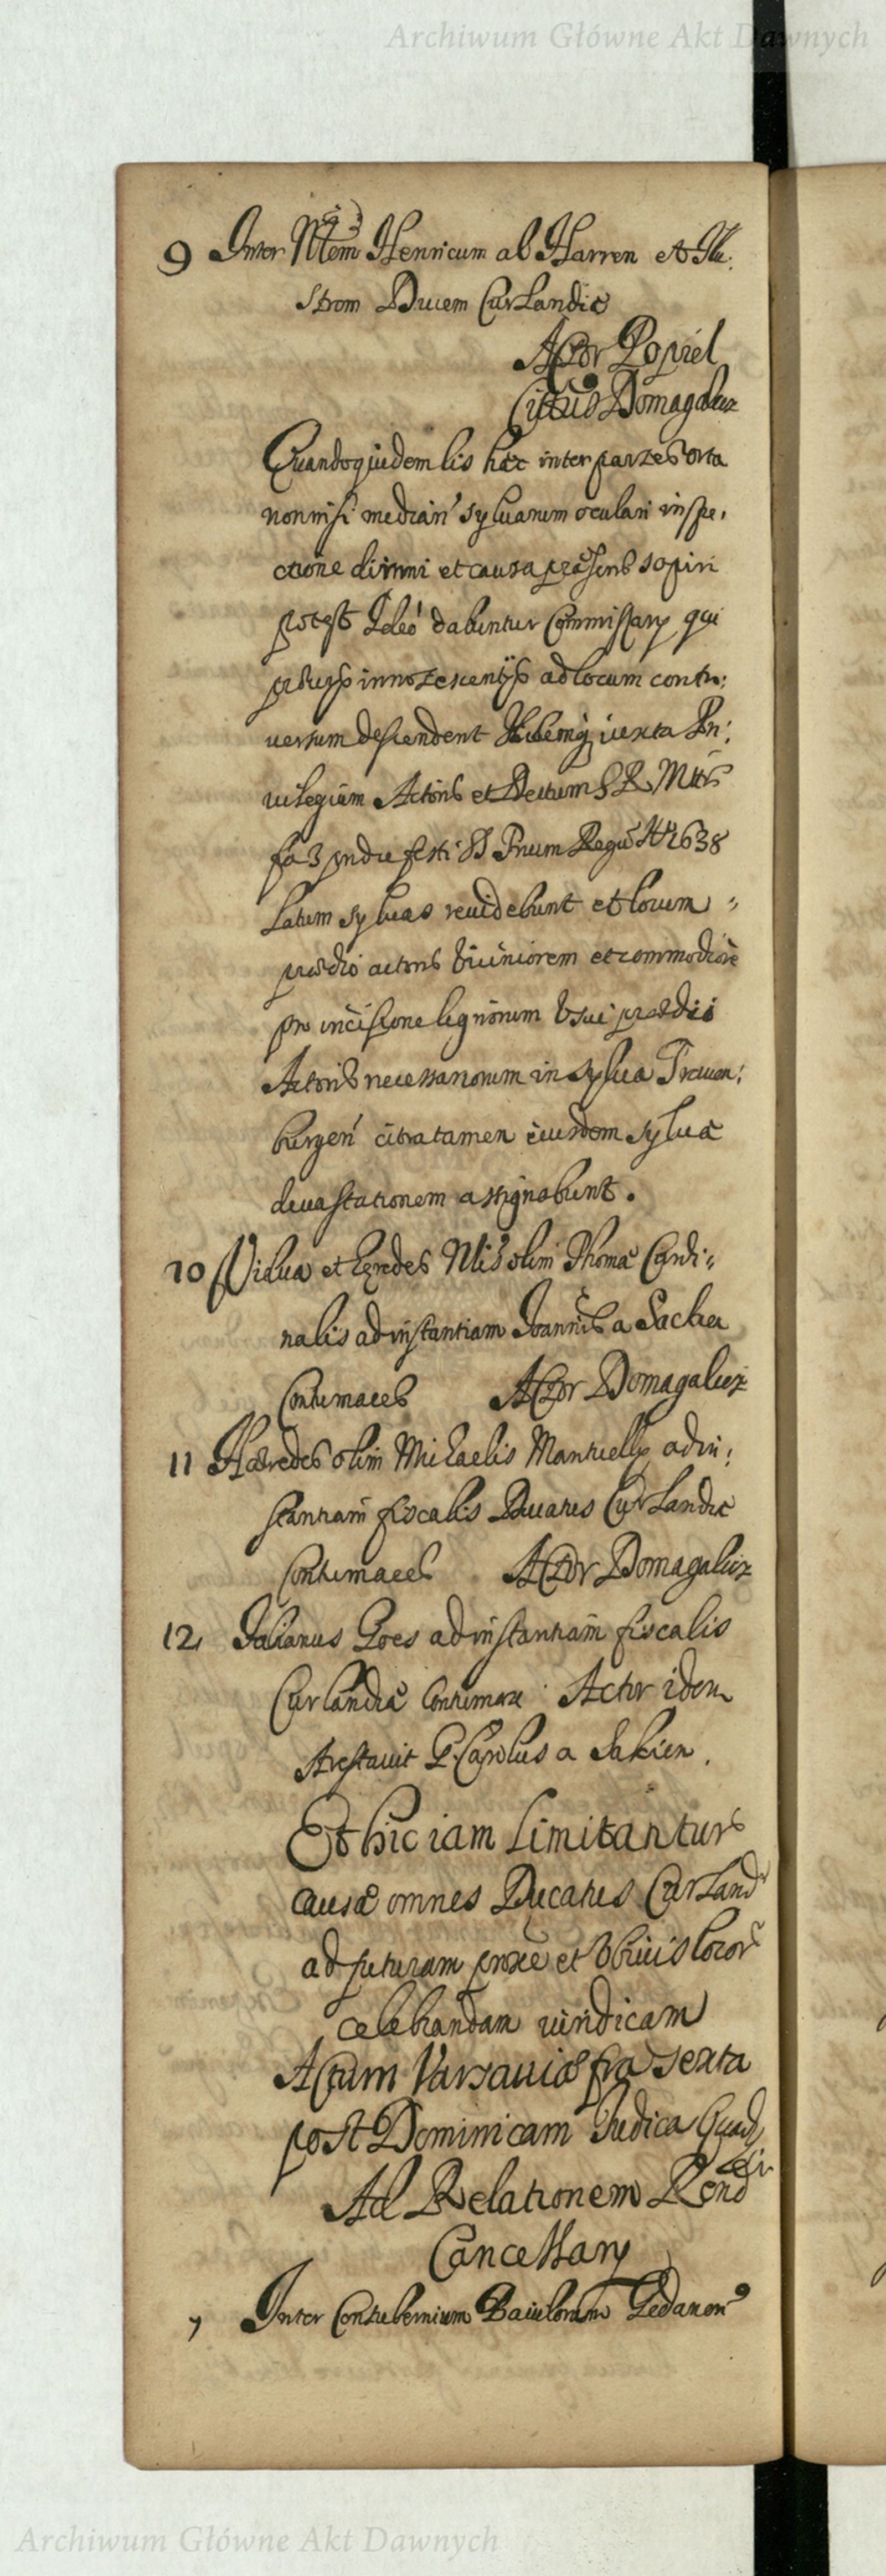 Archiwum Główne Akt Dawnych
9 Inter Henricum ab Harren et Illu:
strem Ducem Curlandiæ
Actor Popiel
Citatus Domagalicz
Quandoquidem lis hæc inter partes orta
nonnisi median' syluarum oculari inspe,
ctione dirimi et causa præsens sopiri
potest Ideo dabuntur Commissarij qui
innotescentijs ad locum contro:
uersum descendent ibidemq iuxta Pri:
uilegium Actoris et Decretum S R Mttis
fa 3 festi SS Trium Regū 1638
Latum syluas reuidebunt et locum
prædio actoris viciniorem et commodiorē
pro incisione lignorum vsui prædii
Actoris necessariorum in sylua Frauen:
burgen' citra tamen eiusdem syluæ
deuastationem assignabunt.
10 Vidua et hæredes olim Thomæ Cardi:
nalis ad instantiam Joannis a Sacken
Contumaces Actor Domagalicz
11 Hæredes olim Michaelis Manteuffly ad in:
stantiam fiscalis Ducatus Curlandiæ
Contumaces Actor Domagalicz
12 Goes ad instantiam fiscalis
Curlandiæ Contumax Actor idem
Arestauit G. Carolus a Sakien.
Et hic iam Limitantur
causæ omnes Ducatus Curland
ad futuram proxe et vbiuis locor
celebrandam iuridicam
Actum Varsauiæ fra sexta
post Dominicam Judica Quad
Ad Relationem Rend
Cancellary
Inter Contubernium Baiulorum Gedanen
Archiwum Główne Akt Dawnych